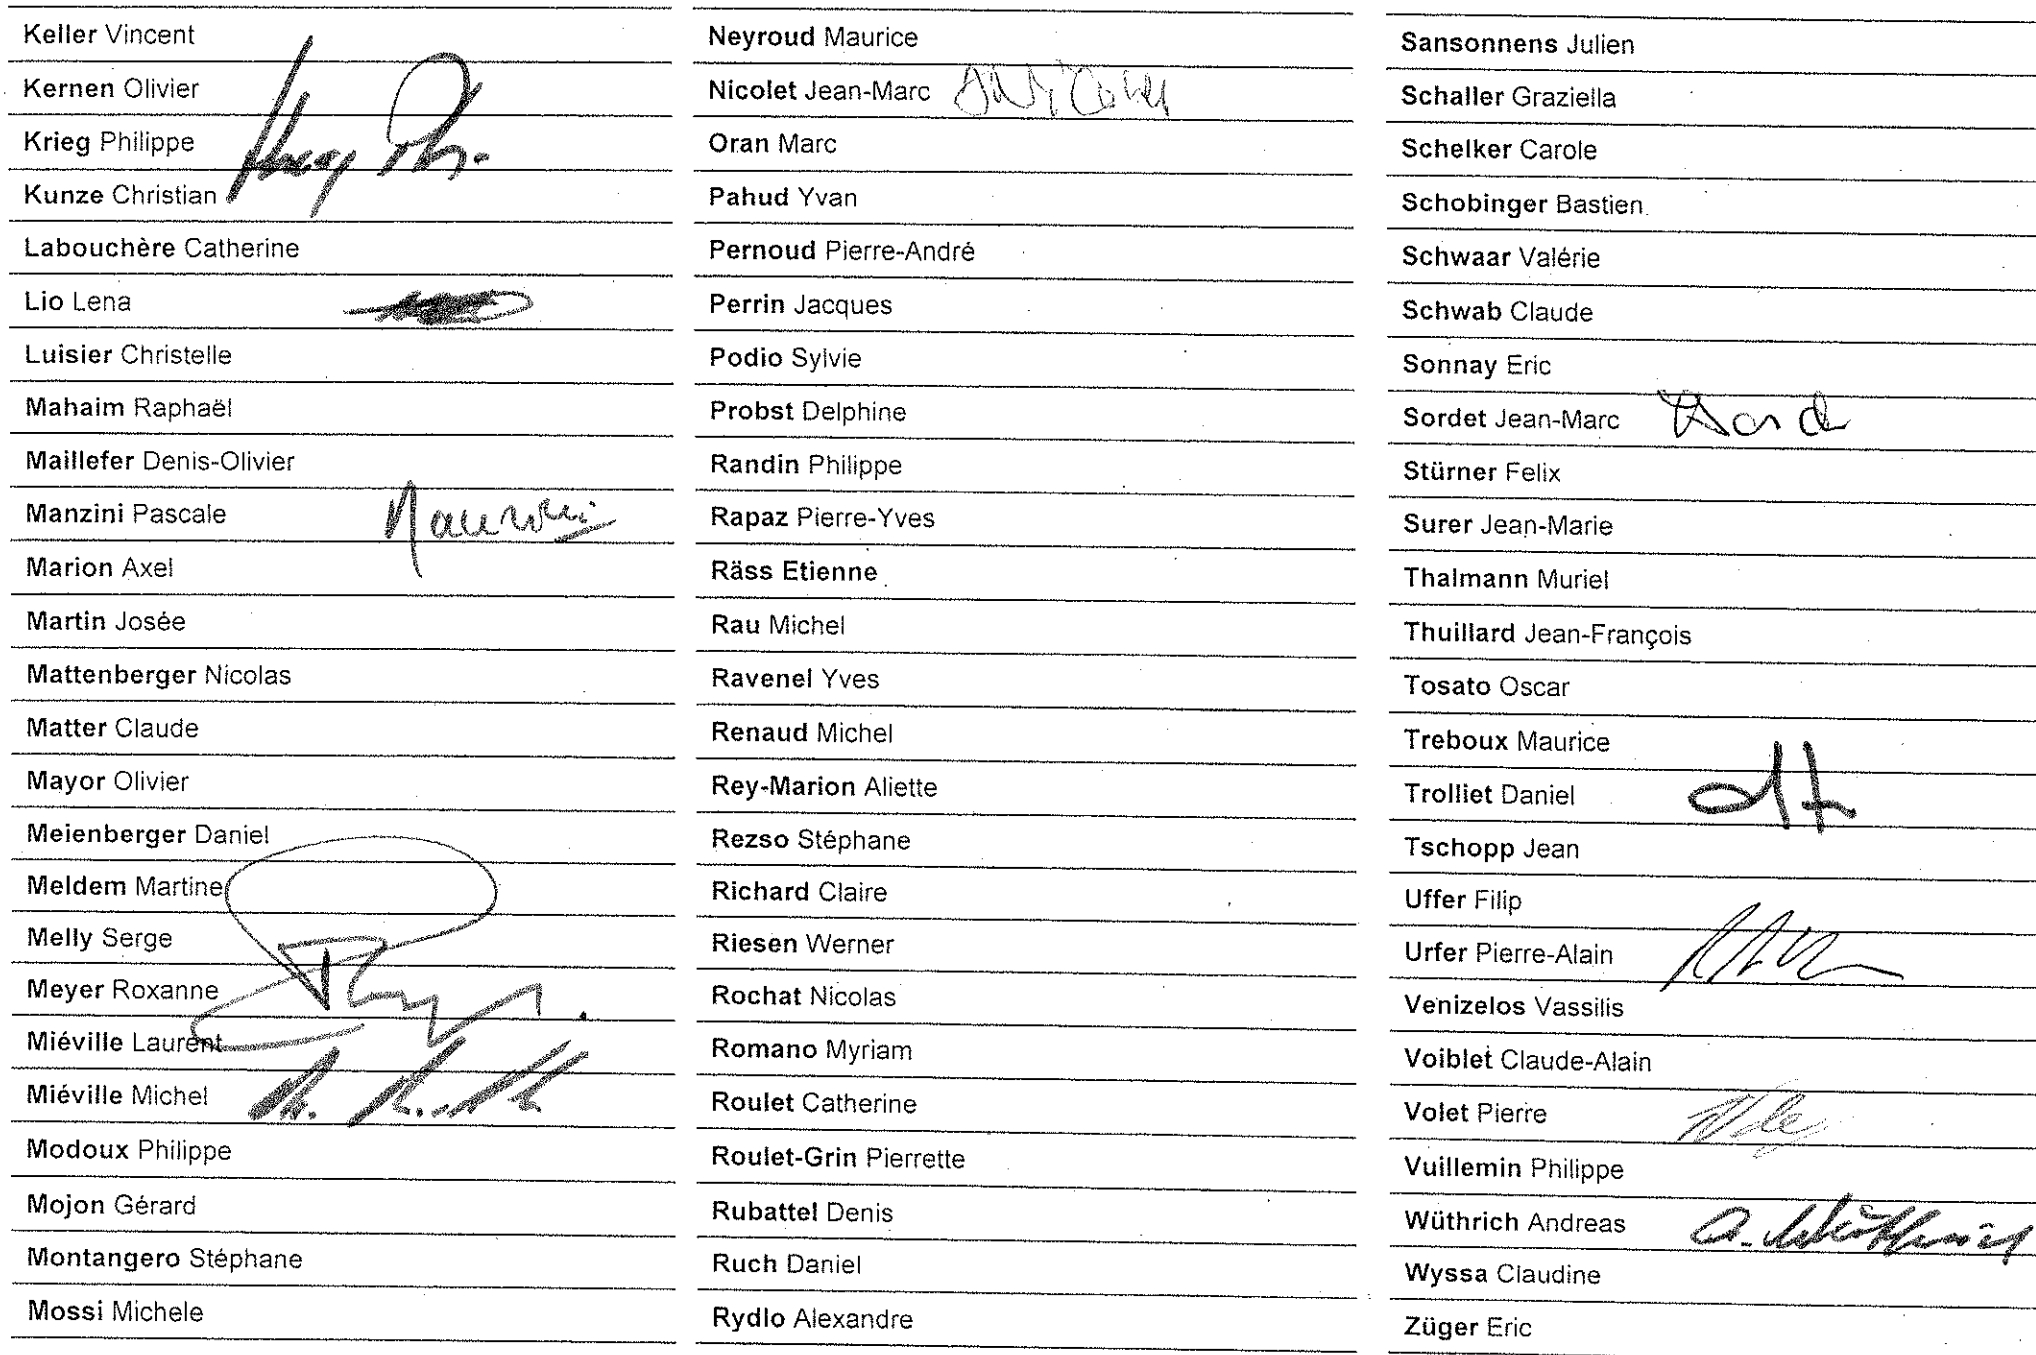 Keller Vincent
Kernen Olivier
Krieg Philippe
Kunze Christian
Labouchère Catherine
Lio Lena
Luisier Christelle
Mahaim Raphaël
Maillefer Denis-Olivier
Manzini Pascale
Marion Axel
Martin Josée
Mattenberger Nicolas
Matter Claude
Mayor Olivier
Meienberger Daniel
Meldem Martine
Melly Serge
Meyer Roxanne
Miéville Laurent
Miéville Michel
Modoux Philippe
Mojon Gérard
Montangero Stéphane
Mossi Michele
Neyroud Maurice
Nicolet Jean-Marc
Oran Marc
Pahud Yvan
Pernoud Pierre-André
Perrin Jacques
Podio Sylvie
Probst Delphine
Randin Philippe
Rapaz Pierre-Yves
Räss Etienne
Rau Michel
Ravenel Yves
Renaud Michel
Rey-Marion Aliette
Rezso Stéphane
Richard Claire
Riesen Werner
Rochat Nicolas
Romano Myriam
Roulet Catherine
Roulet-Grin Pierrette
Rubattel Denis
Ruch Daniel
Rydlo Alexandre
Sansonnens Julien
Schaller Graziella
Schelker Carole
Schobinger Bastien
Schwaar Valérie
Schwab Claude
Sonnay Eric
Sordet Jean-Marc
Stürner Felix
Surer Jean-Marie
Thalmann Muriel
Thuillard Jean-François
Tosato Oscar
Treboux Maurice
Trolliet Daniel
Tschopp Jean
Uffer Filip
Urfer Pierre-Alain
Venizelos Vassilis
Voiblet Claude-Alain
Volet Pierre
Vuillemin Philippe
Wüthrich Andreas a. Wüthrich
Wyssa Claudine
Züger Eric